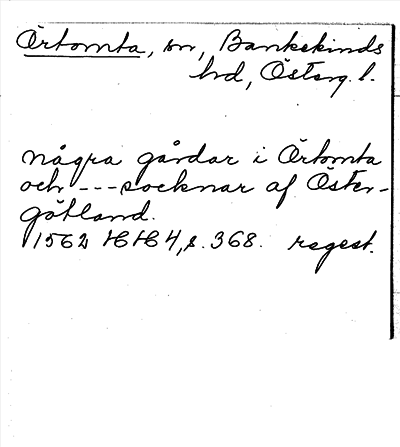 Örtomta, sn, Bankekinds
hd, Österg. l.
några gårdar i Örtomta
och --- socknar af Öster-
götland.
1562 HH 4, s. 368. regest.